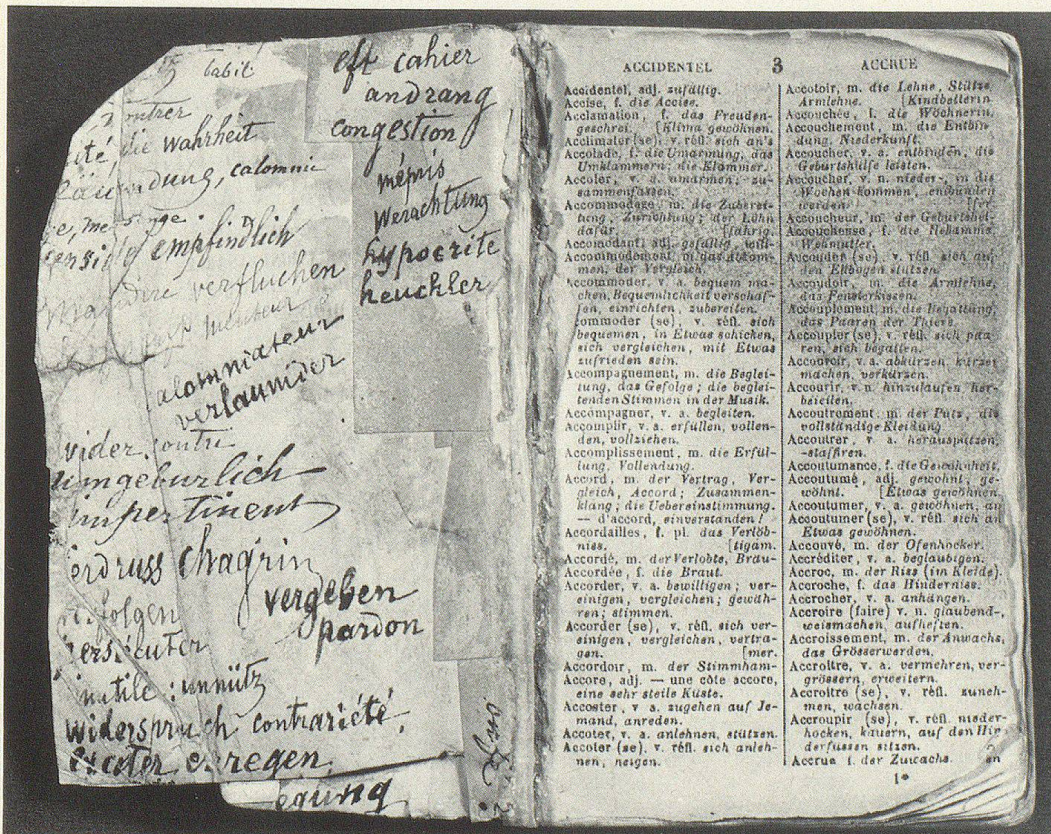 babil
die wahrheit
calomni
empfindlich
verfluchen
verlaumder
wider
umgeburlich
impertinent
chagrin
vergeben
pardon
inutile : unnütz
widerspruch contrariété
erregen
eft cahier
andrang
congestion
mépris
verachtung
hypocrite
heuchler
ACCIDENTEL 3 ACCRUE
Accidentel, adj. zufällig.
Accise, f. die Accise.
Acclamation, f. das Freuden-
geschrei. [Klima gewöhnen.
Acclimater (se), v. réfl. sich an's
Accolade, f. die Umarmung, das
Umklammern; die Klammer.
Accoler, v. a. umarmen, zu-
sammenfassen.
Accommodage, m. die Zuberei-
tung, Zurichtung; der Lohn
dafür. [fährig.
Accomodant, adj. gefällig, will-
Accommodement, m. das Abkom-
men, der Vergleich.
ccommoder, v. a. bequem ma-
chen, Bequemlichkeit verschaf-
fen, einrichten, zubereiten.
commoder (se), v. réfl. sich
bequemen, in Etwas schicken,
sich vergleichen, mit Etwas
zufrieden sein.
Accompagnement, m. die Beglei-
tung, das Gefolge; die beglei-
tenden Stimmen in der Musik.
Accompagner, v. a. begleiten.
Accomplir, v. a. erfüllen, vollen-
den, vollziehen.
Accomplissement, m. die Erfül-
lung, Vollendung.
Accord, m. der Vertrag, Ver-
gleich, Accord; Zusammen-
klang; die Uebereinstimmung.
— d'accord, einverstanden!
Accordailles, f. pl. das Verlöb-
niss. [tigam.
Accordé, m. der Verlobte, Bräu-
Accordée, f. die Braut.
Accorder, v. a. bewilligen; ver-
einigen, vergleichen; gewäh-
ren; stimmen.
Accorder (se), v. réfl. sich ver-
einigen, vergleichen, vertra-
gen. [mer.
Accordoir, m. der Stimmham-
Accore, adj. — une côte accore,
eine sehr steile Küste.
Accoster, v a. zugehen auf Je-
mand, anreden.
Accoter, v. a. anlehnen, stützen.
Accoter (se). v. réfl. sich anleh-
nen, neigen.
Accotoir, m. die Lehne, Stütze,
Armlehne. [Kindbetterin.
Accouchée, f. die Wöchnerin,
Accouchement, m. die Entbin-
dung, Niederkunft.
Accoucher, v. a. entbinden, die
Geburtshilfe leisten.
Accoucher, v. n. nieder-, in die
Wochen kommen, entbunden
werden. [fer.
Accoucheur, m. der Geburtshel-
Accoucheuse, f. die Hebamme,
Wehmutter.
Accouder (se), v. réfl. sich auf
den Ellbogen stützen.
Accoudoir, m. die Armlehne,
das Fensterkissen.
Accouplement, m. die Begattung,
das Paaren der Thiere.
Accoupler (se), v. réfl. sich paa-
ren, sich begatten.
Accourcir, v. a. abkürzen, kürzer
machen, verkürzen.
Accourir, v. n. hinzulaufen, her-
beieilen.
Accoutrement, m. der Putz, die
vollständige Kleidung
Accoutrer, v. a. herausputzen,
-staffiren.
Accoutumance, f. die Gewohnheit,
Accoutumé, adj. gewohnt, ge-
wöhnt. [Etwas gewöhnen.
Accoutumer, v. a. gewöhnen, an
Accoutumer (se), v. réfl. sich an
Etwas gewöhnen.
Accouvé, m. der Ofenhocker.
Accréditer, v. a. beglaubigen.
Accroc, m. der Riss (im Kleide).
Accroche, f. das Hinderniss.
Accrocher, v. a. anhängen.
Accroire (faire) v. n. glaubend-,
weismachen, aufheften.
Accroissement, m. der Anwachs,
das Grösserwerden.
Accroître, v. a. vermehren, ver-
grössern, erweitern.
Accroître (se), v. réfl. zuneh-
men, wachsen.
Accroupir (se), v. réfl. nieder-
hocken, kauern, auf den Hin
derfussen sitzen.
Accrue f. der Zuwachs. an
1*